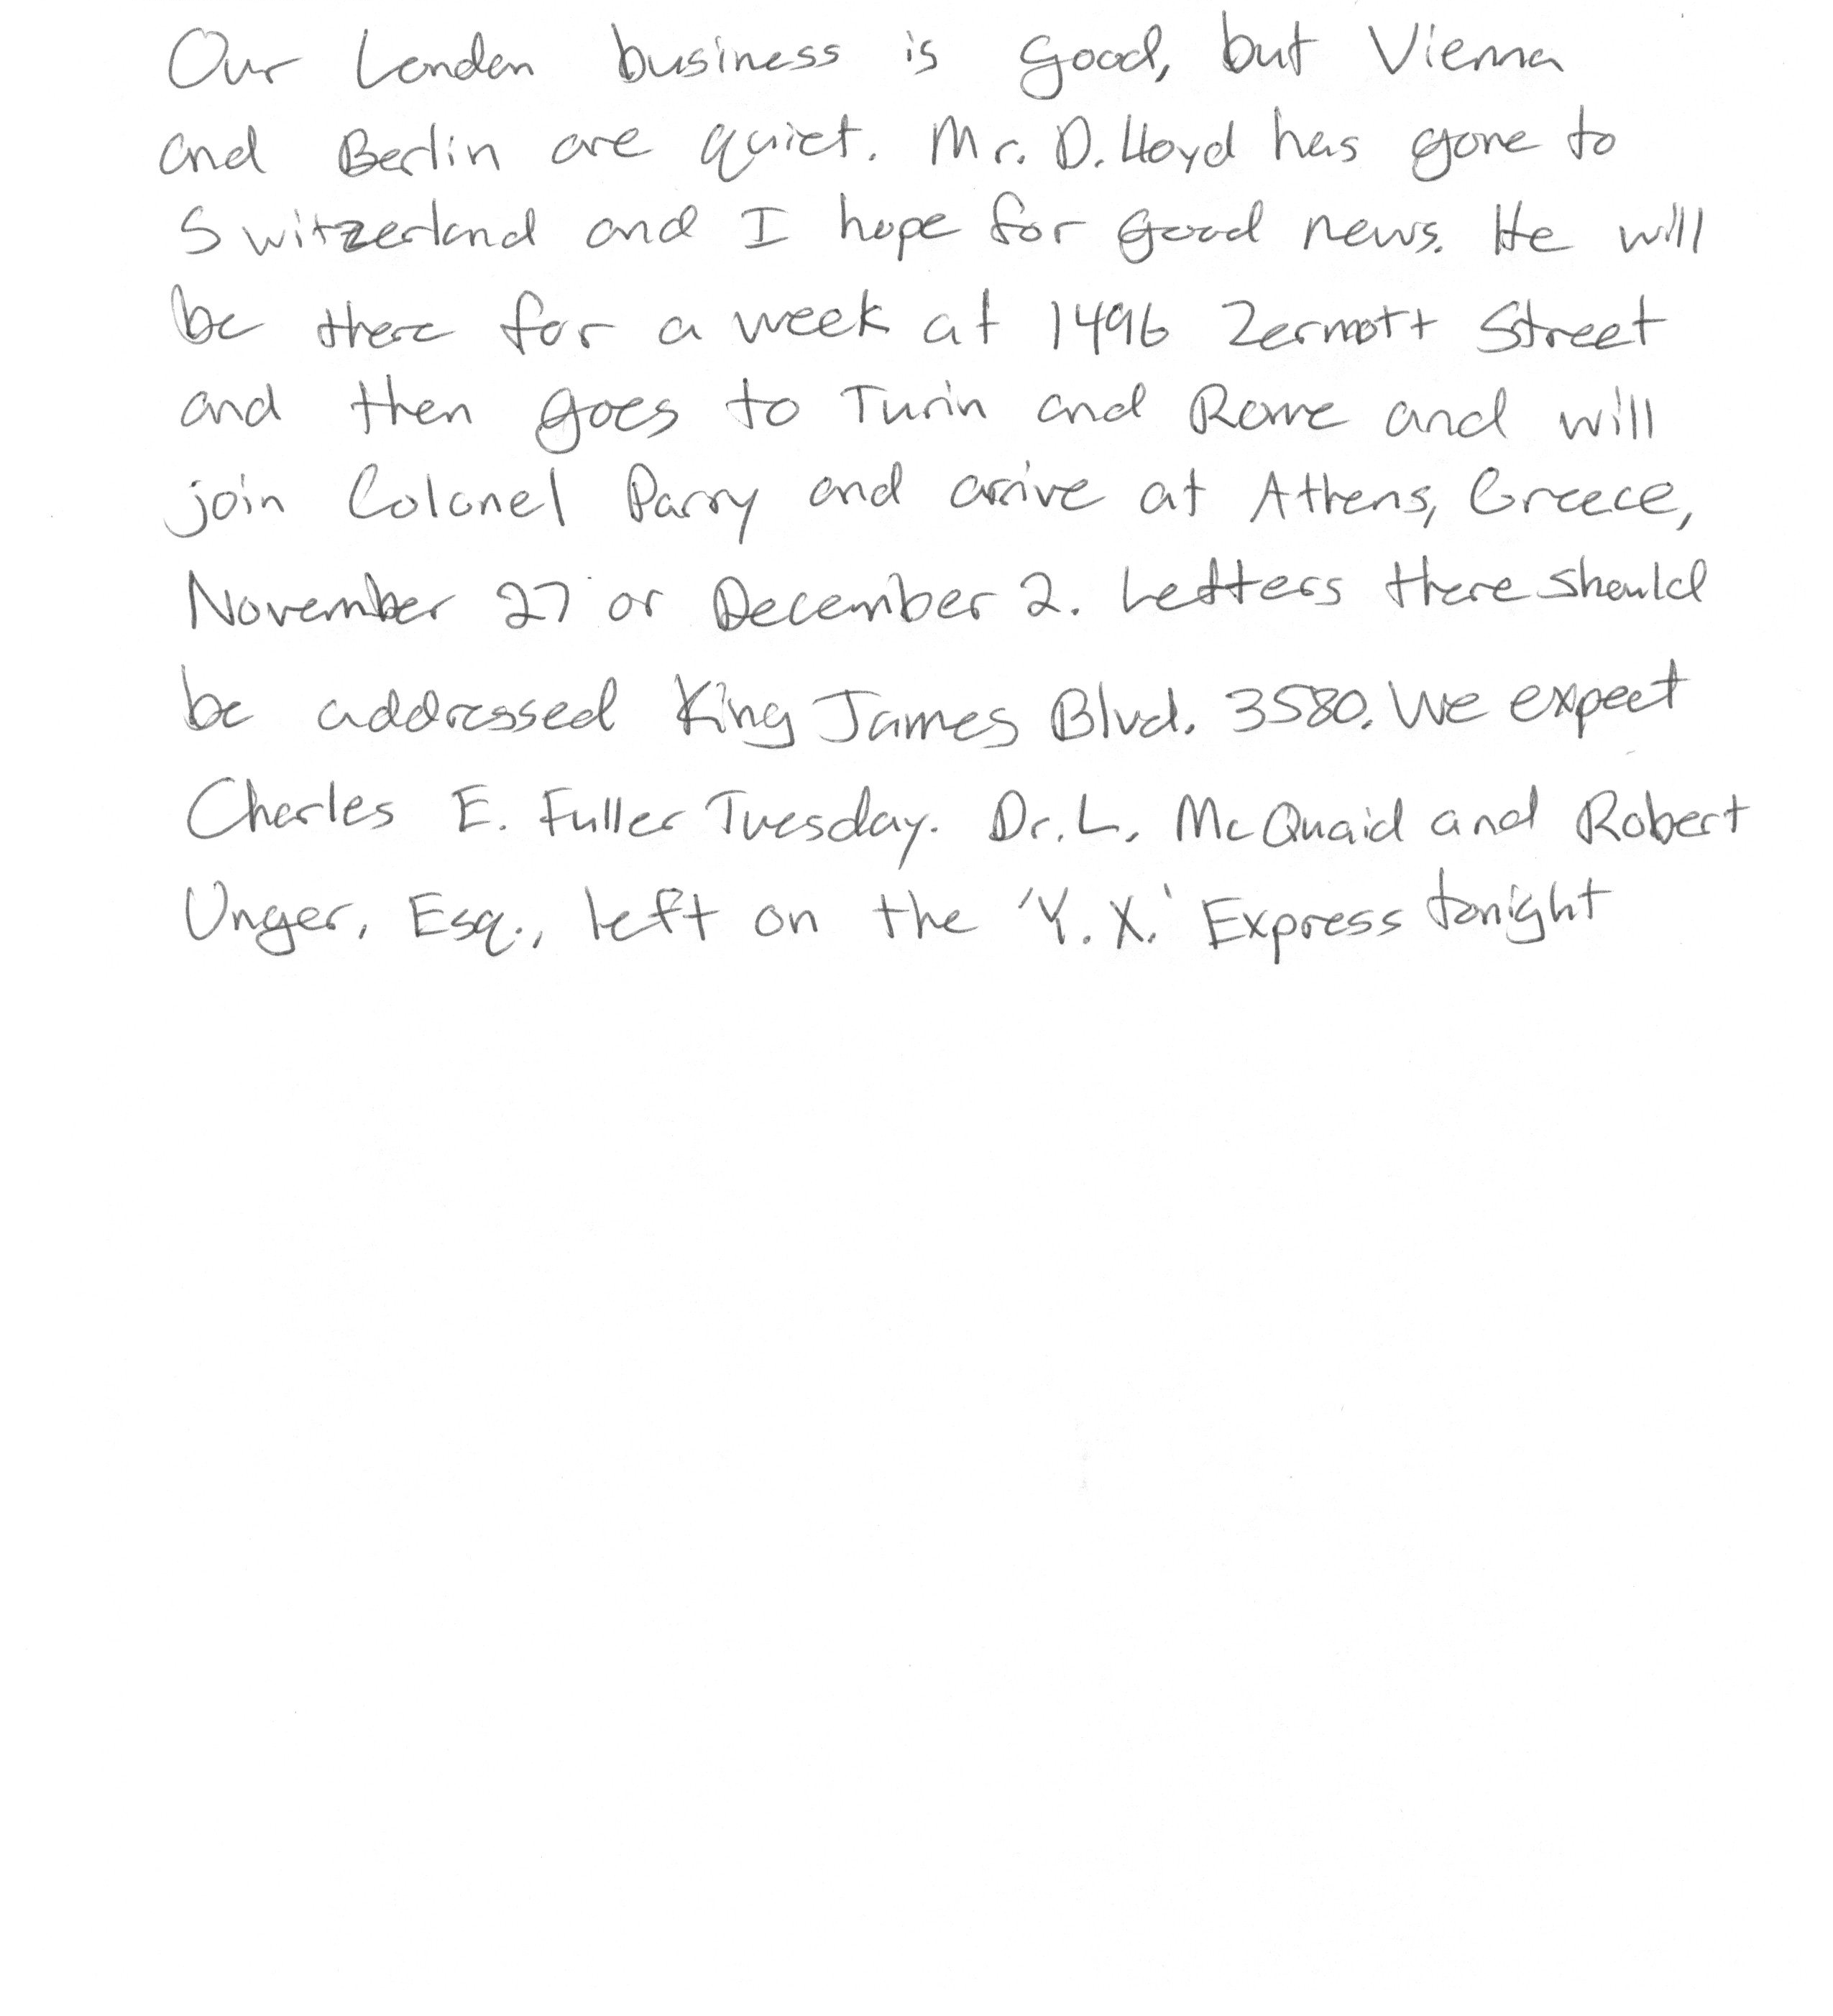 Our London business is good, but Vienna
and Berlin are quiet. Mr. D. Lloyd has gone to
Switzerland and I hope for good news. He will
be there for a week at 1496 Zermott Street
and then goes to Turin and Rome and will
join Colonel Parry and arrive at Athens, Greece,
November 27 or December 2. Letters there should
be addressed King James Blvd. 3580. We expect
Charles E. Fuller Tuesday. Dr. L. McQuaid and Robert
Unger, Esq., left on the 'Y. X.' Express tonight